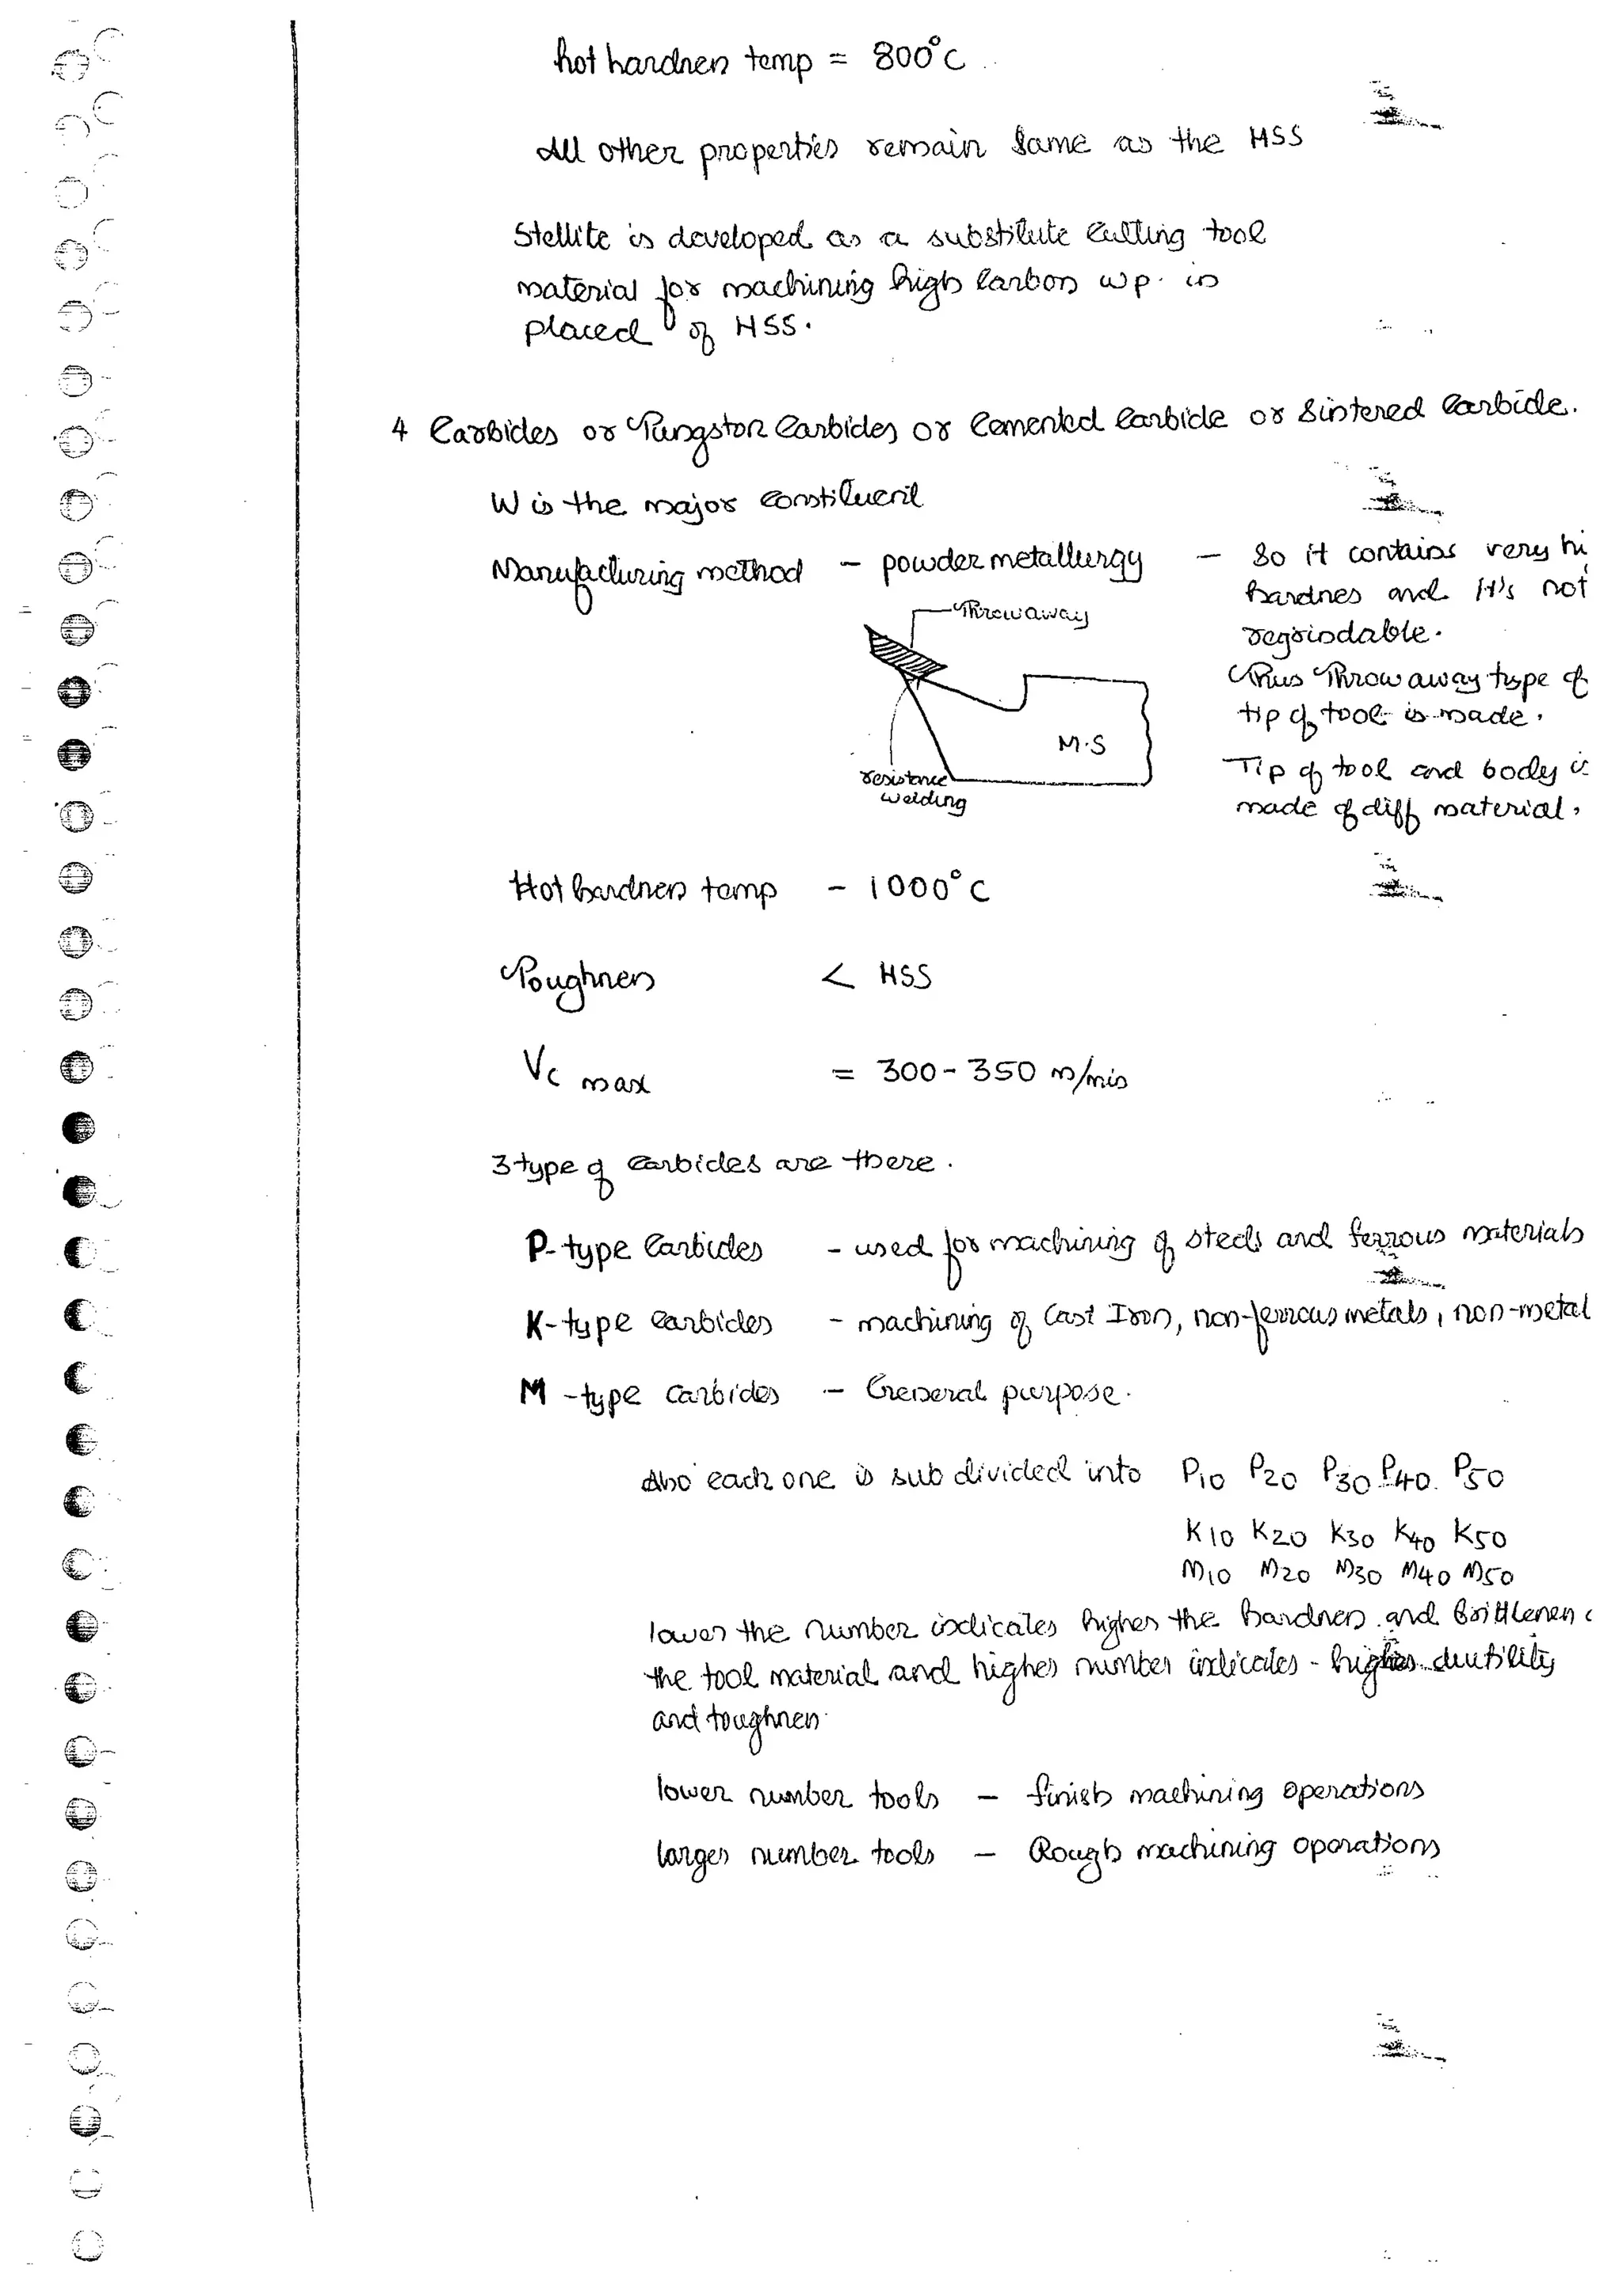 hot hardness temp = 800°C
All other properties remain same as the HSS
Stellite is developed as a substitute cutting tool
material for machining high carbon wp. in
placed of HSS.
4 Carbides or Tungston Carbides or Cemented Carbide or Sintered Carbide.
W is the major constituent
Manufacturing method - powder metallurgy - So it contains very hi
hardnes and it's not
regrindable.
Thus Throw away type of
tip of tool is made.
Tip of tool and body is
made of diff material.
Throw away
M.S
resistance
welding
Hot hardness temp - 1000°C
Toughness < HSS
Vc max = 300 - 350 m/min
3 type of carbides are there.
P- type Carbides - used for machining of steels and ferrous materials
K- type carbides - machining of Cast Iron, non-ferrous metals, non-metal
M - type carbides - General purpose.
Also each one is sub divided into P10 P20 P30 P40. P50
K10 K20 K30 K40 K50
M10 M20 M30 M40 M50
lower the number indicates higher the hardness and brittleness
the tool material and higher number indicates - higher ductility
and toughness
lower number tools - finish machining operations
larger number tools - Rough machining operations